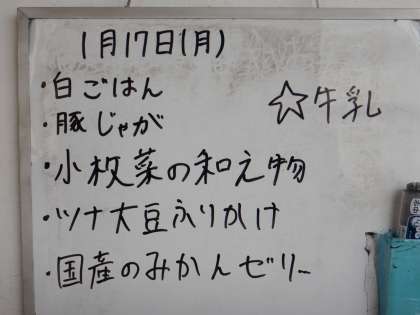 1月17日(月)
・白ごはん
・豚じゃが
☆牛乳
・小枚菜の和え物
・ツナ大豆ふりかけ
・国産のみかんゼリー